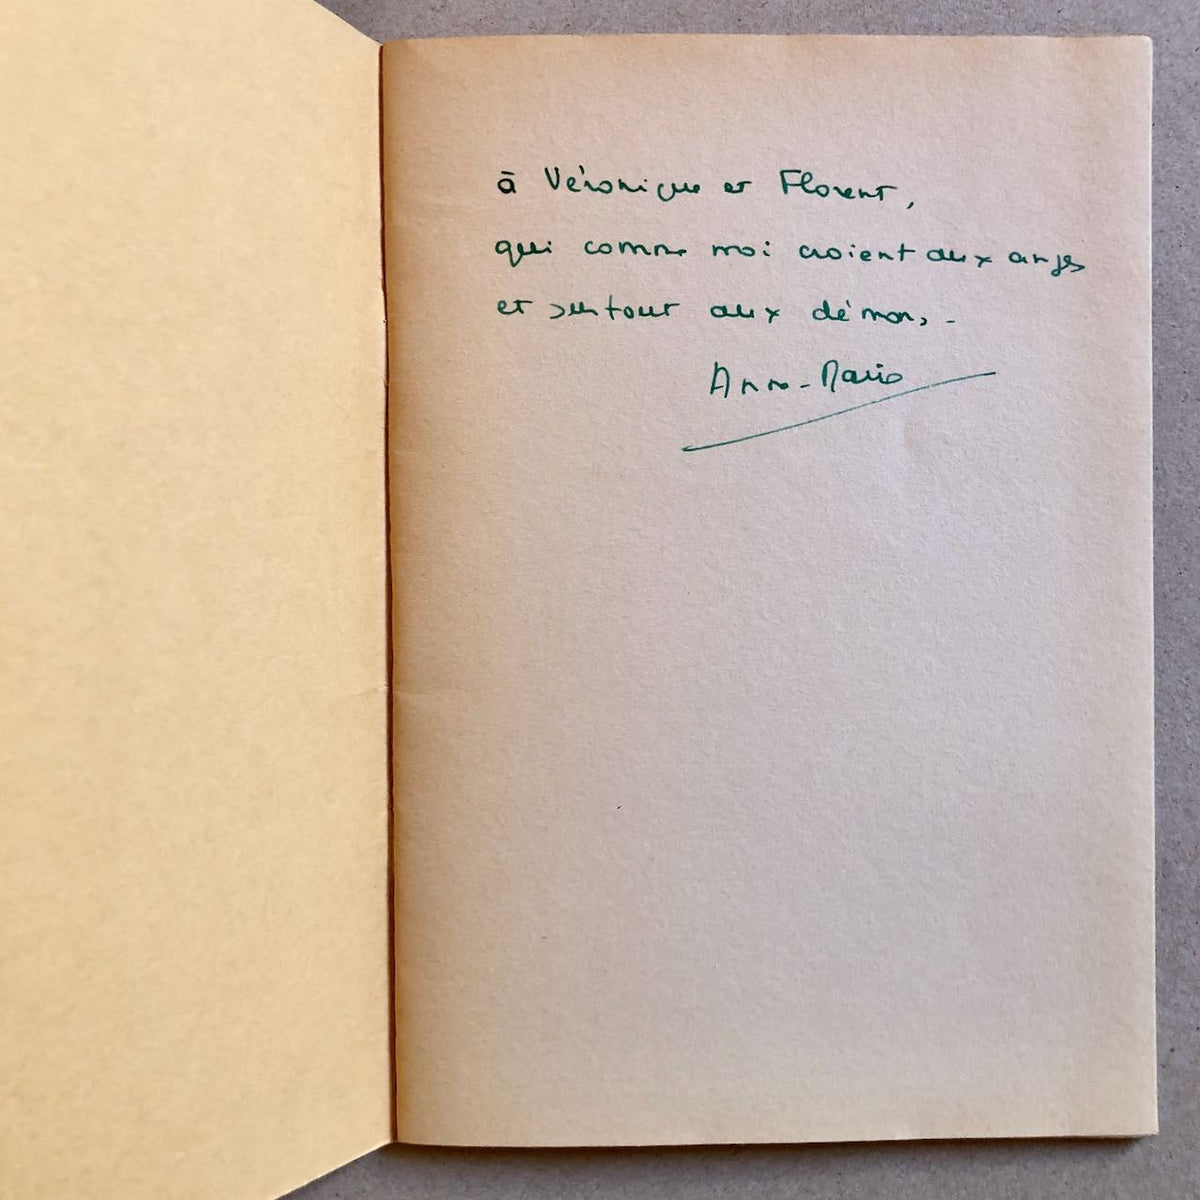 à Véronique et Florent,
qui comme moi croient aux anges
et surtout aux démons. -
Anne-Marie